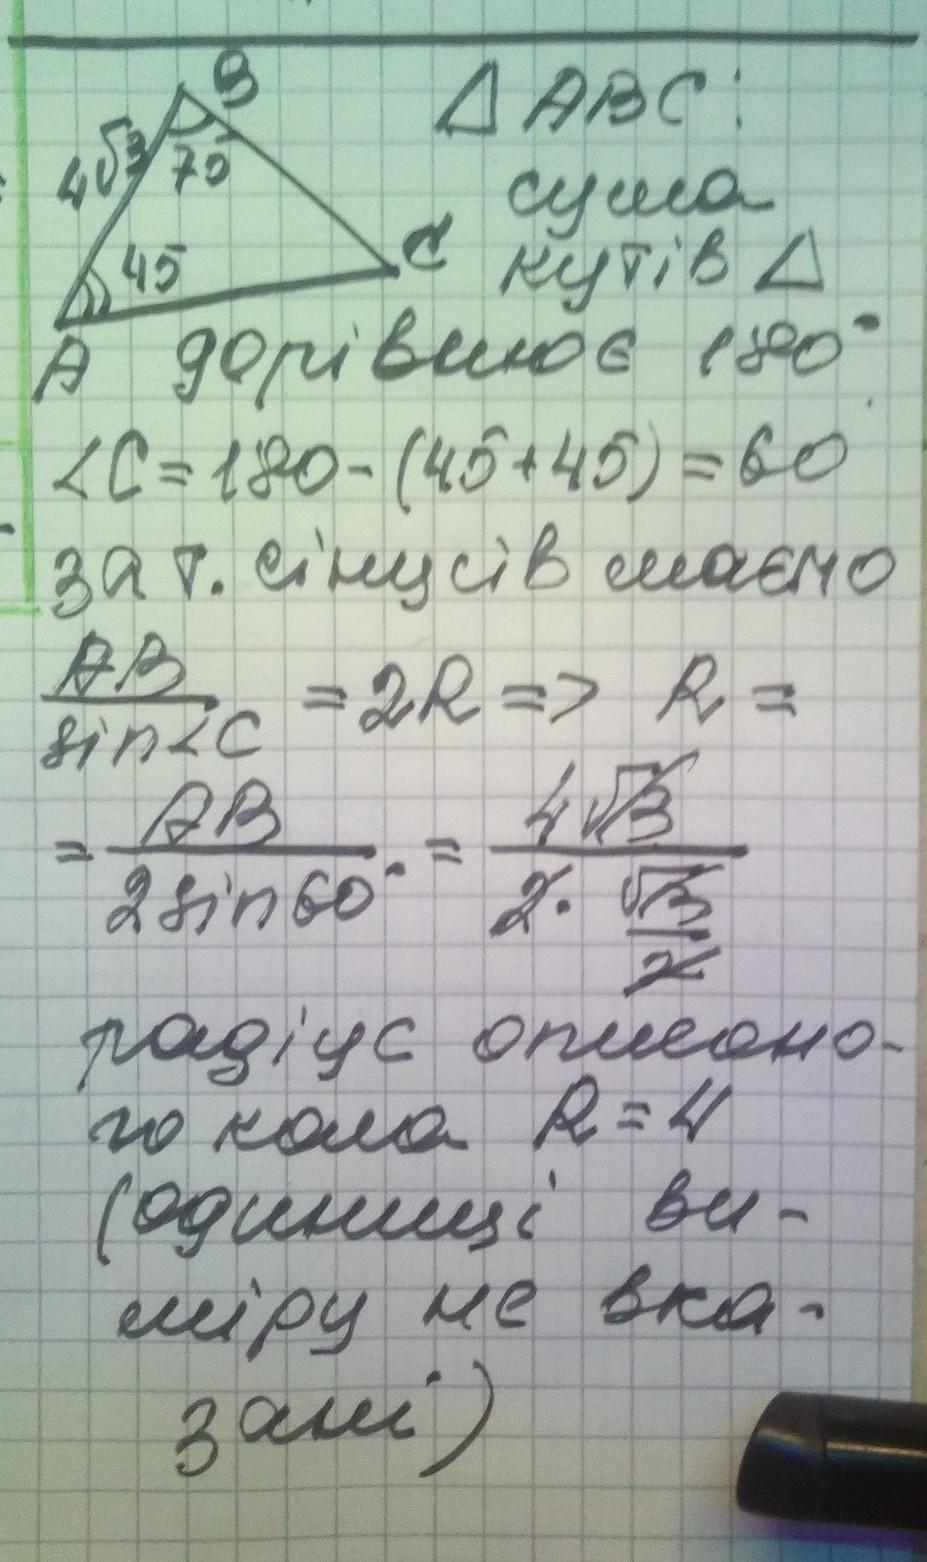 B
△ ABC:
4√3
75
сума
45
C
кутів △
A дорівнює 180°
∠C = 180 - (45 + 45) = 60
за т. сінусів маємо
AB/sin∠C = 2R => R =
= AB/2sin60° = 4√3/2·√3/2
радіус описано-
го кола R = 4
(одиниці ви-
міру не вка-
зані)